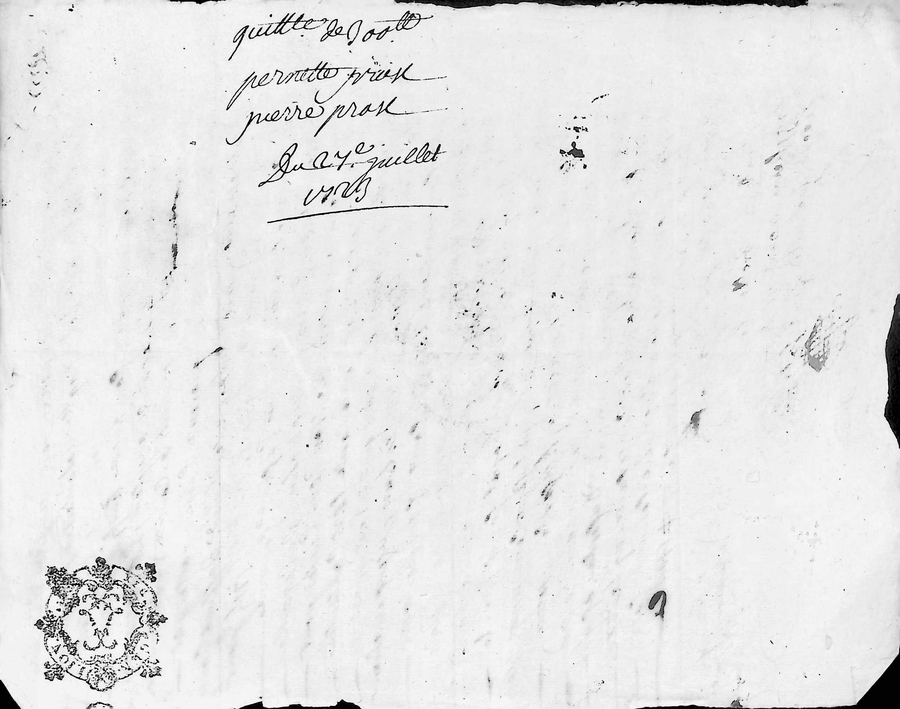 quittte de Dotte
pernette prost
pierre prost
Du 27e juillet
1723